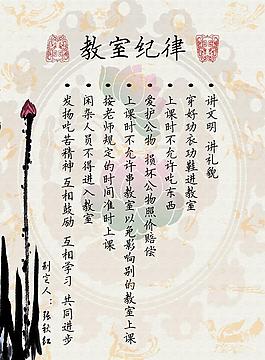 教室纪律
讲文明 讲礼貌
穿好功衣功鞋进教室
上课时不允许吃东西
爱护公物 损坏公物照价赔偿
上课时不允许串教室以免影响别的教室上课
按老师规定的时间准时上课
闲杂人员不得进入教室
发扬吃苦精神 互相鼓励 互相学习 共同进步
制定人：张秋红